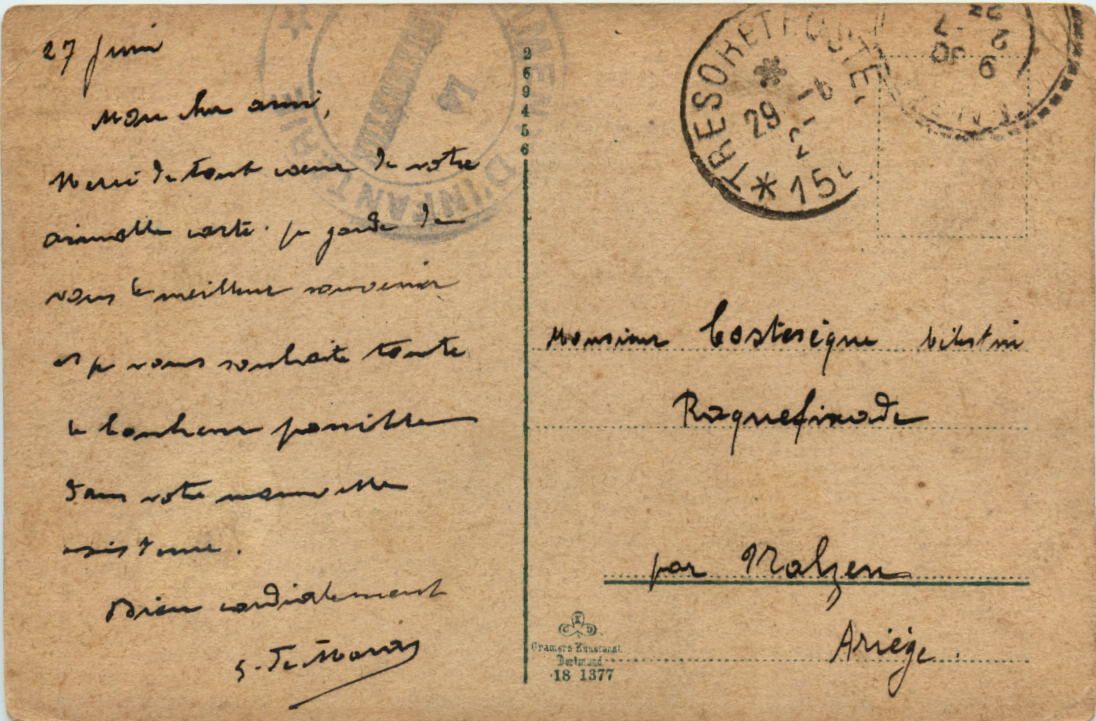 27 Juin
Mon cher ami,
Merci de tout cœur de votre
aimable carte. Je garde de
vous le meilleur souvenir
et je vous souhaite toute
le bonheur possible
dans votre nouvelle
existence.
Bien cordialement
269456
D'INFANTERIE
14
TRESOR ET POSTES
29
* 15
Monsieur Costesèque Célestin
Roquefixade
par Nalzen
Ariège.
Cramers Kunstanst.
Dortmund
18 1377